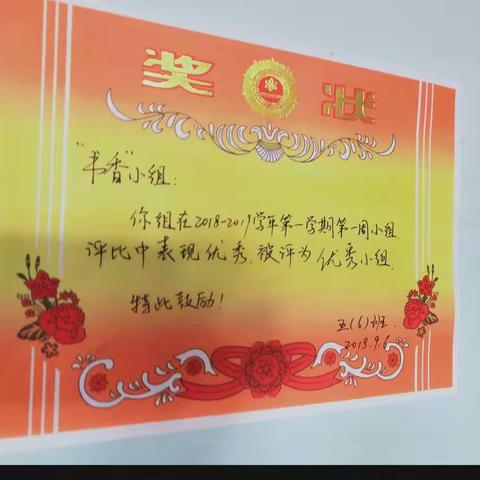 奖状
"书香"小组:
你组在2018-2019学年第一学期第一周小组
评比中表现优秀,被评为优秀小组.
特此鼓励!
五(6)班.
2018.9.6